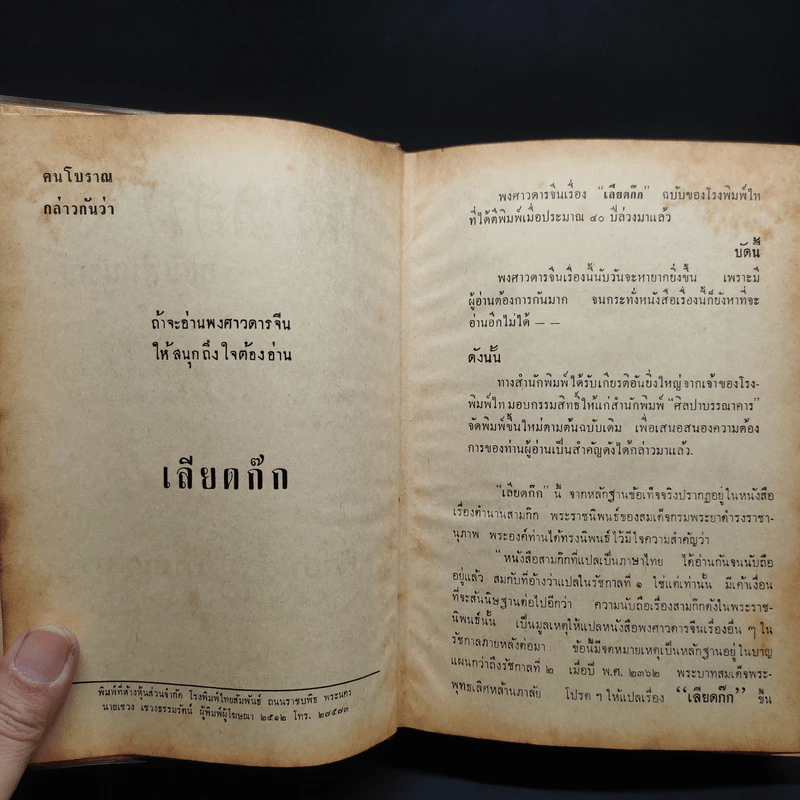 คนโบราณ
กล่าวกันว่า
ถ้าจะอ่านพงศาวดารจีน
ให้สนุกถึงใจต้องอ่าน
เลียดก๊ก
พิมพ์ที่ห้างหุ้นส่วนจำกัด โรงพิมพ์ไทยสัมพันธ์ ถนนราชบพิธ พระนคร
นายเชวง เชวงธรรมรักน์ ผู้พิมพ์ผู้โฆษณา ๒๕๑๒ โทร. ๒๗๕๗๓
พงศาวดารจีนเรื่อง “เลียดก๊ก” ฉบับของโรงพิมพ์ไท
ที่ได้ตีพิมพ์เมื่อประมาณ ๔๐ ปีล่วงมาแล้ว
บัดนี้
พงศาวดารจีนเรื่องนี้นับวันจะหายากยิ่งขึ้น เพราะมี
ผู้อ่านต้องการกันมาก จนกระทั่งหนังสือเรื่องนี้ก็ยังหาที่จะ
อ่านอีกไม่ได้ — —
ดังนั้น
ทางสำนักพิมพ์ได้รับเกียรติอันยิ่งใหญ่จากเจ้าของโรง-
พิมพ์ไท มอบกรรมสิทธิ์ให้แก่สำนักพิมพ์ “ศิลปาบรรณาคาร”
จัดพิมพ์ขึ้นใหม่ตามต้นฉบับเดิม เพื่อเสนอสนองความต้อง
การของท่านผู้อ่านเป็นสำคัญดังได้กล่าวมาแล้ว.
“เลียดก๊ก” นี้ จากหลักฐานข้อเท็จจริงปรากฏอยู่ในหนังสือ
เรื่องตำนานสามก๊ก พระราชนิพนธ์ของสมเด็จกรมพระยาดำรงราชา-
นุภาพ พระองค์ท่านได้ทรงนิพนธ์ไว้มีใจความสำคัญว่า
“หนังสือสามก๊กที่แปลเป็นภาษาไทย ได้อ่านกันจนนับถือ
อยู่แล้ว สมกับที่อ้างว่าแปลในรัชกาลที่ ๑ ใช่แต่เท่านั้น มีเค้าเงื่อน
ที่จะสันนิษฐานต่อไปอีกว่า ความนับถือเรื่องสามก๊กดังในพระราช-
นิพนธ์นั้น เป็นมูลเหตุให้แปลหนังสือพงศาวดารจีนเรื่องอื่น ๆ ใน
รัชกาลภายหลังต่อมา ข้อนี้มีจดหมายเหตุเป็นหลักฐานอยู่ในบาญ
แผนกว่าถึงรัชกาลที่ ๒ เมื่อปี พ.ศ. ๒๓๖๒ พระบาทสมเด็จพระ-
พุทธเลิศหล้านภาลัย โปรด ฯ ให้แปลเรื่อง “เลียดก๊ก” ขึ้น